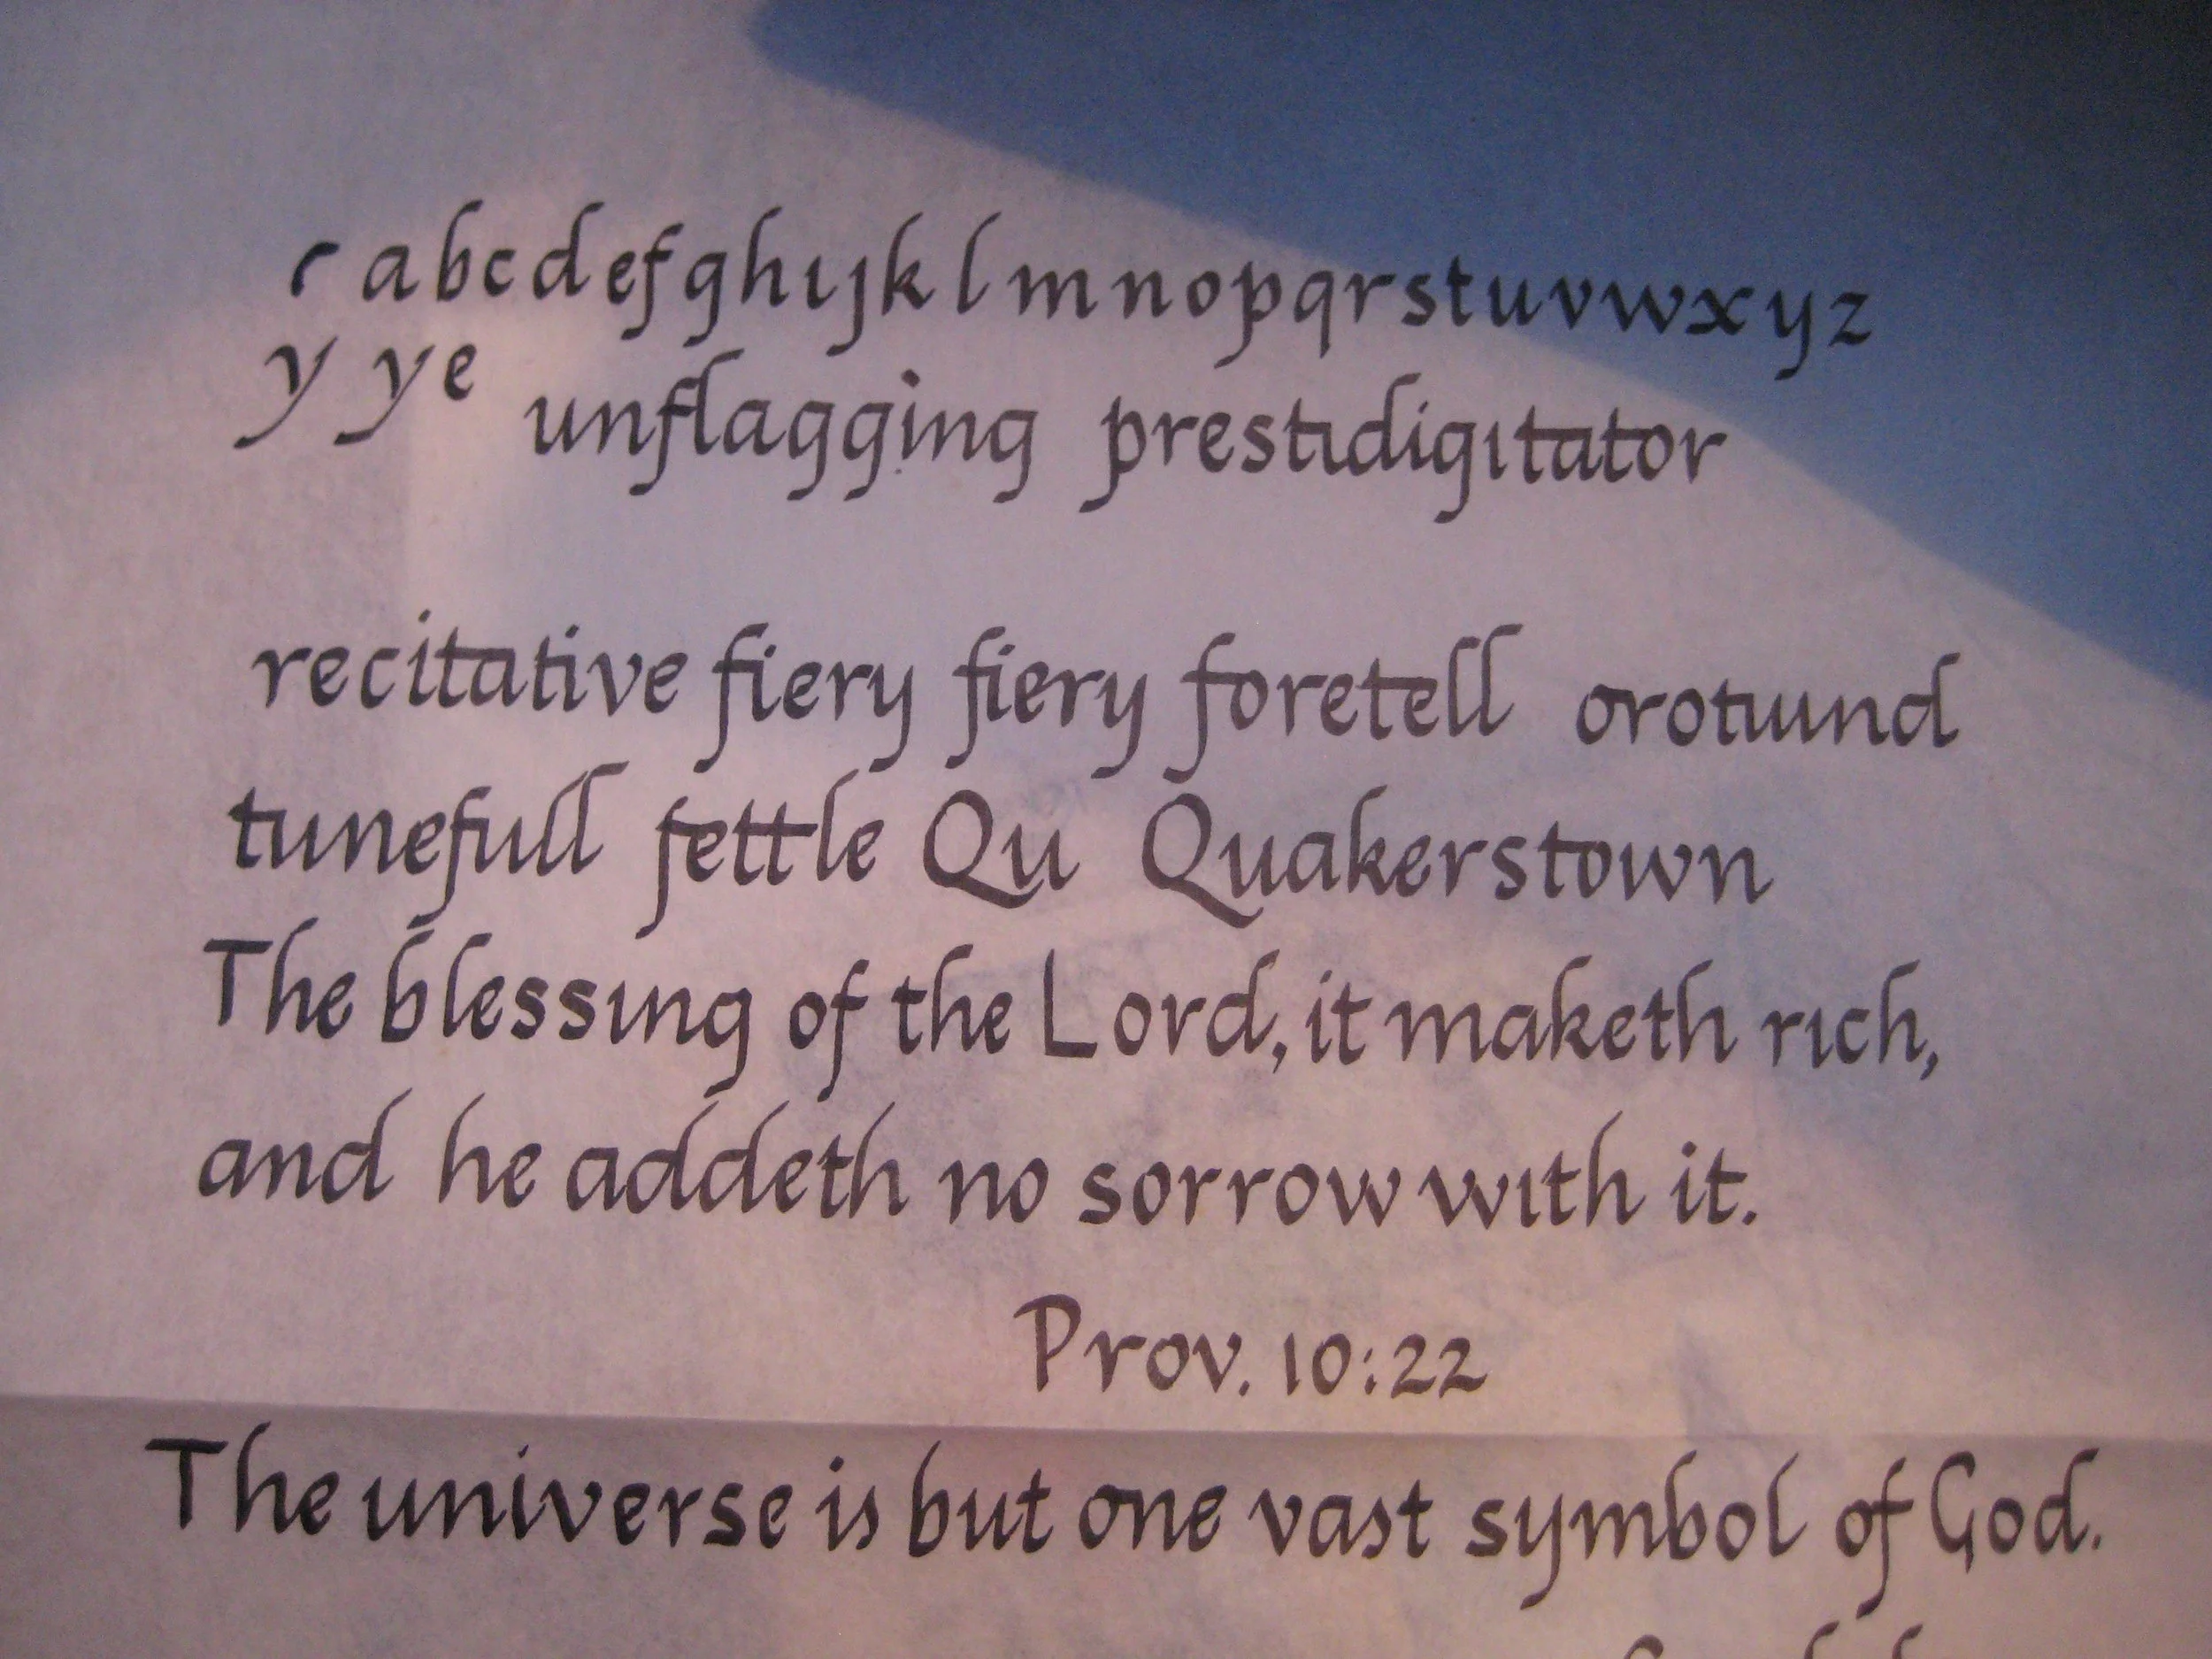 r abcdefghıȷklmnopqrstuvwxyz
y ye unflagging prestıdigıtator
recitative fiery fiery foretell orotuund
tunefull fettle Qu Quakerstown
The blessıng of the Lord, it maketh rıch,
and he addeth no sorrow wıth it.
Prov. 10:22
The universe is but one vast symbol of God.